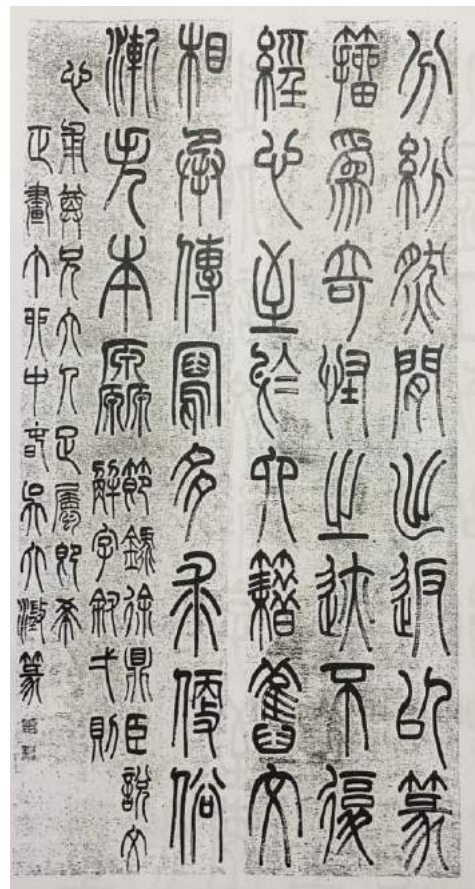 分紛然間出返以篆
籀爲奇怪之迹不復
經心至於六籍舊文
相承傳寫多求便俗
漸失本原
節錄徐鼎臣說文
解字敘弌則
心甫尊兄大人疋屬即希
正畫丁卯中春吳大澂篆